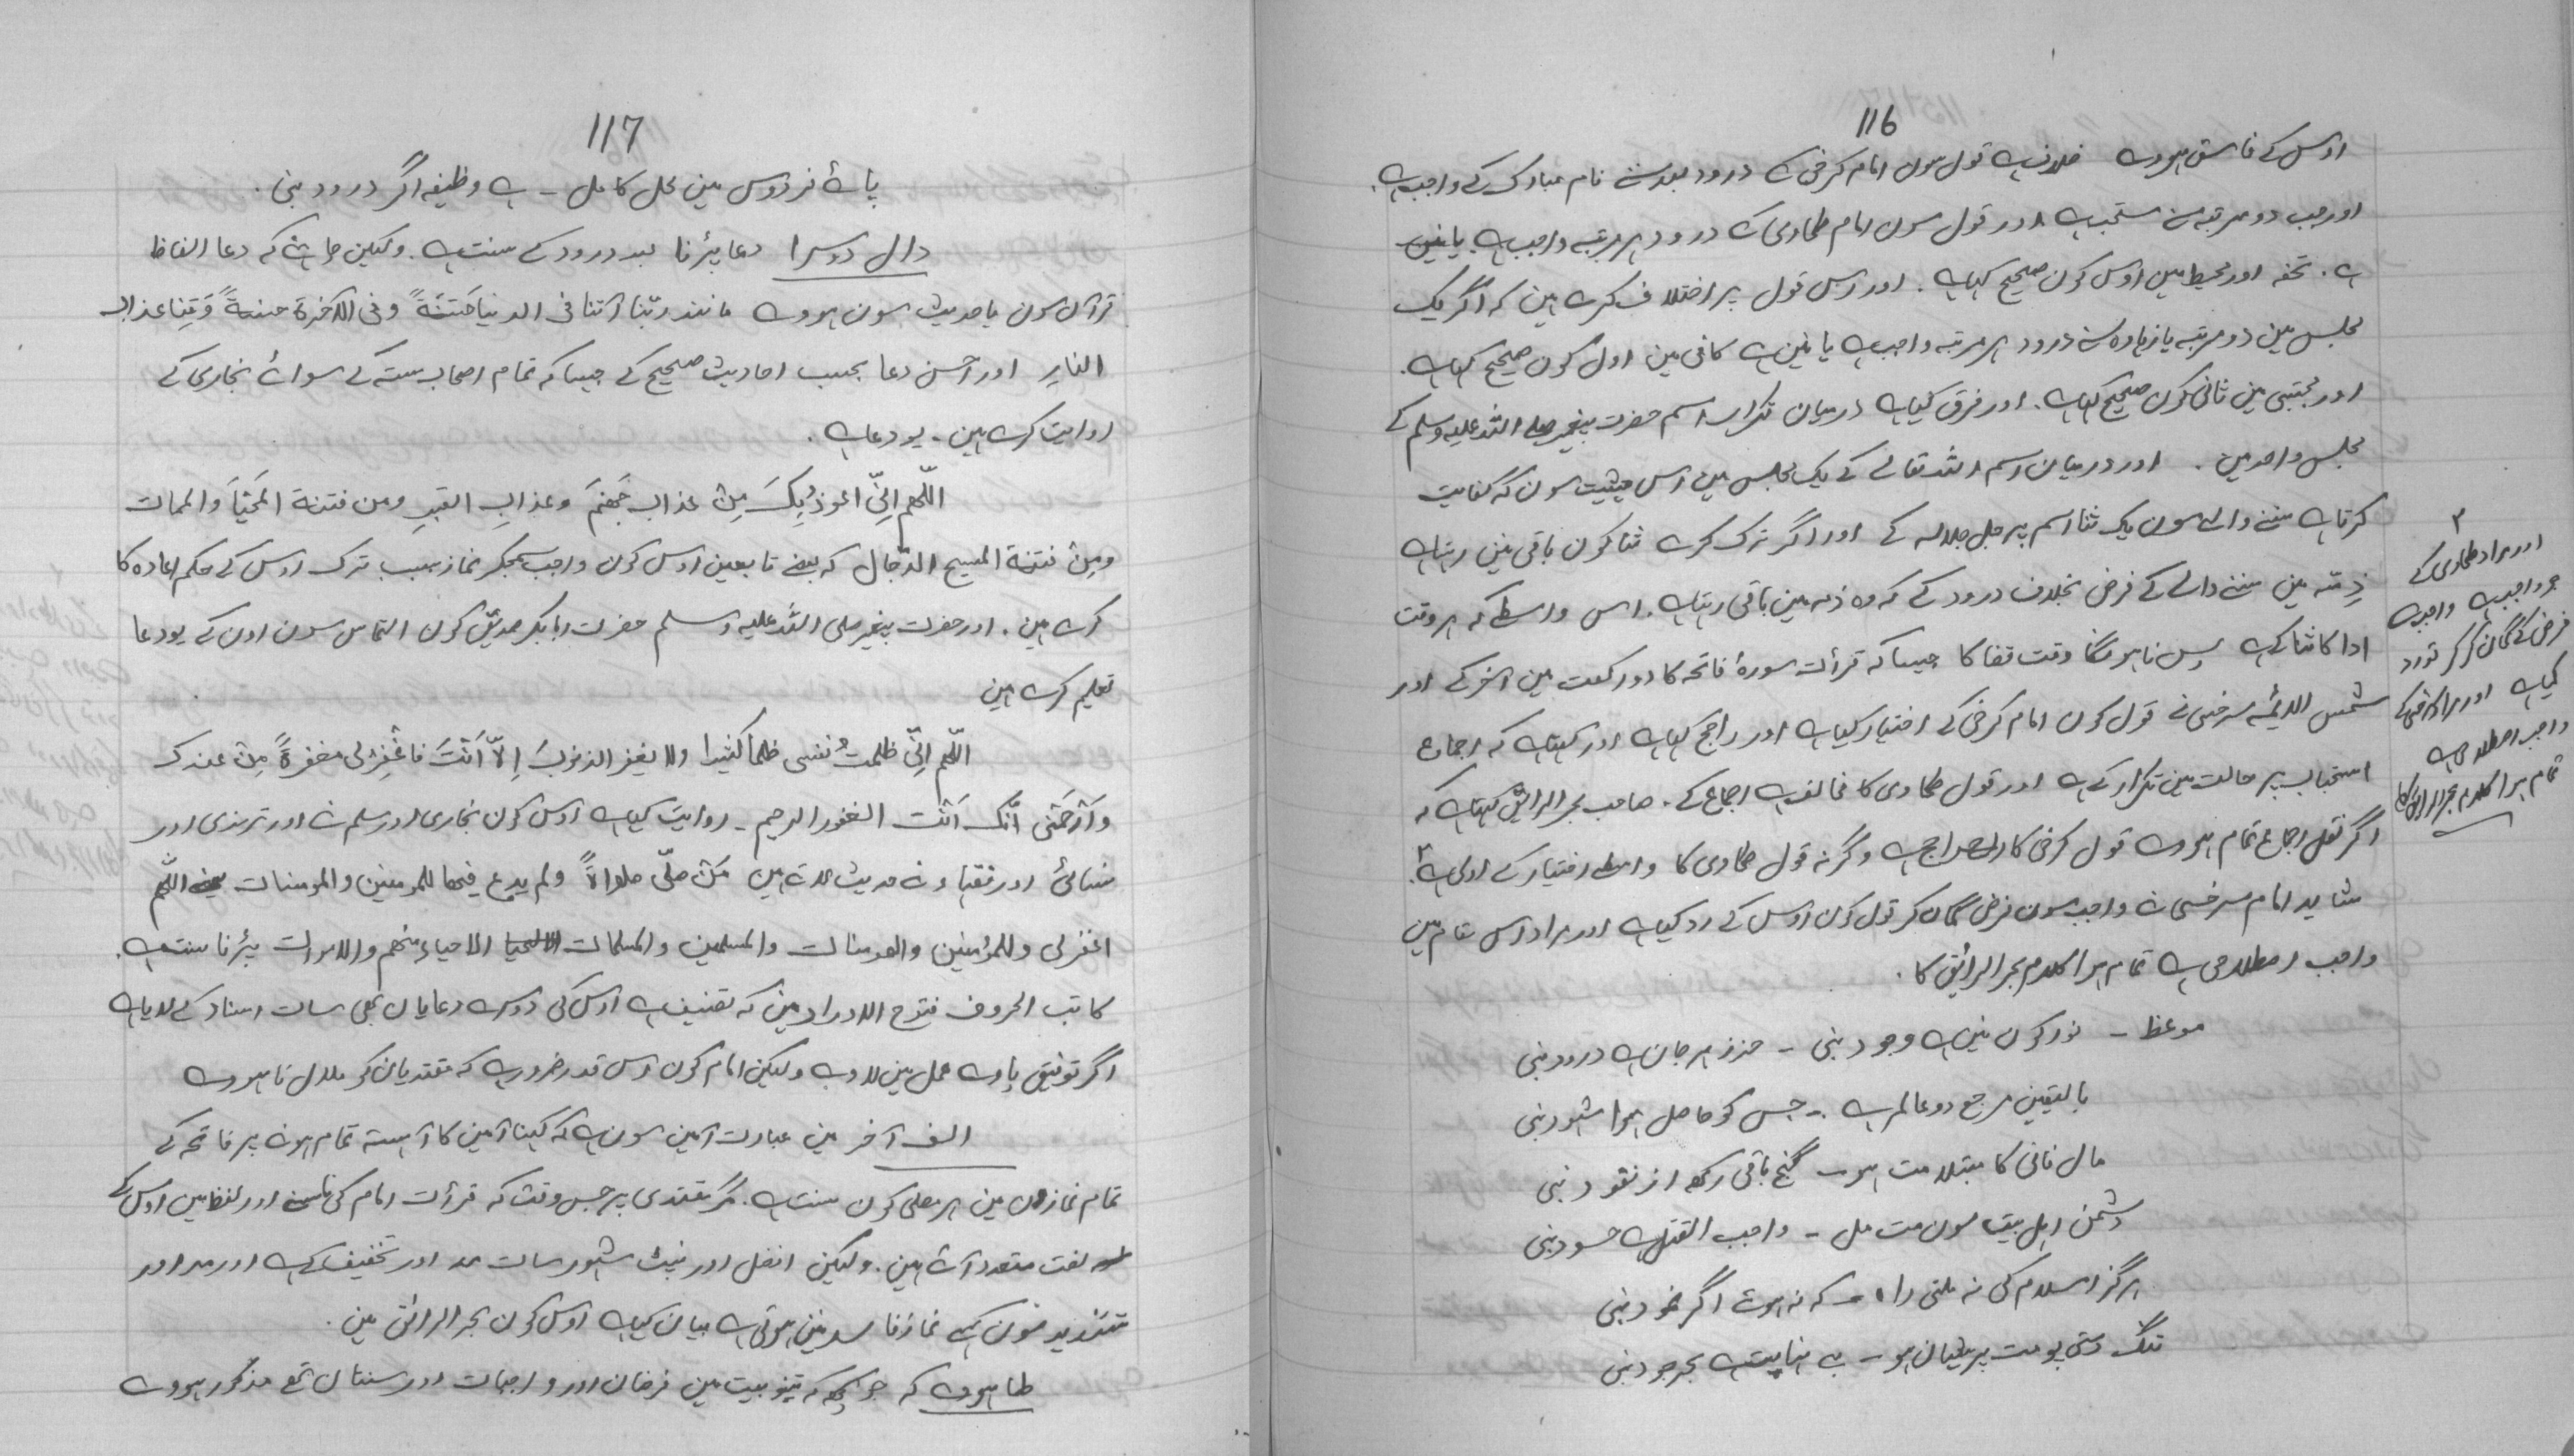 116
اوس کے فاسق ہووے خلاف ہے قول سون امام کرخی کے درود بعد سننے نام مبارک کے واجب ہے.
اور جب دو مرتبہ سنے مستحب ہے اور قول سون امام طحاوی کے درود ہر مرتبہ واجب ہے یا نین
ہے. تحفہ اور محیط مین اوس کون صحیح کہا ہے. اور اس قول پر اختلاف کرے ہین کہ اگر یک
مجلس مین دو مرتبہ یا زیادہ سنے درود ہر مرتبہ واجب ہے یا نین ہے کافی مین اول کون صحیح کہا ہے.
اور مجتبی مین ثانی کون صحیح کہا ہے. اور فرق کیا ہے درمیان تکرار اسم حضرت پیغمبر صلے اللہ علیہ وسلم کے
مجلس واحد مین. اور درمیان اسم اللہ تعالے کے یک مجلس مین اس حیثیت سون کہ کفایت
کرتا ہے سننے والے سون یک ثنا اسم پر جل جلالہ کے اور اگر ترک کرے ثنا کون باقی نین رہتا ہے
ذمّہ مین سننے والے کے فرض بخلاف درود کے کہ وہ ذمہ مین باقی رہتا ہے. اس واسطے کہ ہر وقت
ادا کا ثنا کے ہے پس نا ہوئیگا وقت قضا کا جیسا کہ قرأت سورۂ فاتحہ کا دو رکعت مین آخر کے اور
شمس الائمہ سرخسی نے قول کون امام کرخی کے اختیار کیا ہے اور راجح کہا ہے اور کہتا ہے کہ اجماع
استحباب پر حالت مین تکرار کے ہے اور قول طحاوی کا مخالف ہے اجماع کے. صاحب بحر الرائق کہتا ہے کہ
اگر نقل اجماع تمام ہووے قول کرخی کا راجح ہے وگرنہ قول طحاوی کا واسطے اختیار کے اولی ہے ۲
شاید امام سرخسی نے واجب سون فرض گمان کر قول کون اوس کے رد کیا ہے اور مراد اس مقام مین
واجب اصطلاحی ہے تمام ہوا کلام بحر الرائق کا.
۲
اور مراد طحاوی کے
جو واجب ہے واجب
فرض کے گمان کر کر تو رد
کیا ہے اور مراد کرخی کے
واجب اصطلاحی ہے
تمام ہوا کلام بحر الرائق کا
موعظ - نور کون نین ہے وجود نبی - حرز ہر جان ہے درود نبی
بالیقین مرجع دو عالم ہے - جس کو حاصل ہوا شہود نبی
مال فانی کا مبتلا مت ہو - گنج باقی رکھ از نقود نبی
دشمن اہل بیت سون مت مل - واجب القتل ہے حسود نبی
ہرگز اسلام کی نہ ملتی راہ - کہ نہ ہوے اگر نبی
تنگ دستی یو مت پریشان ہو - بے نہایت ہے بحر جود نبی
117
پاے فردوس مین محل کامل - ہے وظیفہ اگر درود نبی.
دال دوسرا دعا پڑنا بعد درود کے سنت ہے. ولیکن چاہئے کہ دعا الفاظ
قرآن سون یا حدیث سون ہووے مانند ربّنا آتنا فی الدنیا حَسَنَةً وفی الآخرة حسنةً وَقِنا عذاب
النارِ اور احسن دعا بحسب احادیث صحیح کے جیسا کہ تمام اصحاب ستہ کے سوائے بخاری کے
روایت کرے ہین - یو دعا ہے.
اللّٰهم اِنّی اعوذُ بِکَ مِنْ عذاب جَهنمَ وعذابِ القبرِ ومن فتنة المَحْیَا والممات
ومِنْ فتنة المسیح الدّجال کہ بعضے تابعین اوس کون واجب سمجکر نماز بسبب ترک اوس کے حکم اعادہ کا
کرے ہین. اور حضرت پیغمبر صلی اللہ علیہ وسلم حضرت ابابکر صدیقؓ کون التماس سون اون کے یو دعا
تعلیم کرے ہین
اللّٰهم اِنّی ظلمتُ نفسی ظلماً کثیرا ولا یغفر الذنوبَ اِلاّ اَنْتَ فاغْفِرْلی مغفرةً مِنْ عندک
وارْحَمْنی انَّک اَنْتَ الغفور الرحیم - روایت کیا ہے اوس کون بخاری اور مسلم نے اور ترمذی اور
نسائی اور فقہا ونے حدیث لاے ہین مَنْ صلّی صلواةً ولم یدع فیها للمومنین والمومنات اللّٰهم
اغفرلی وللمؤمنین والمومنات والمسلمین والمسلمات الاحیاء منهم والاموات پڑنا سنت ہے.
کاتب الحروف فتوح الاوراد مین کہ تصنیف ہے اوس کی دوسرے دعایان بھی سات اسناد کے لایا ہے
اگر توفیق پاوے عمل مین لاوے ولیکن امام کون اس قدر ضرور ہے کہ مقتدیان کو ملال نا ہووے
الف آخر مین عبارت آمین سون ہے کہ کہنا آمین کا آہستہ تمام ہونے پر فاتحہ کے
تمام نمازوں مین ہر مصلی کون سنت ہے. مگر مقتدی پر جس وقت کہ قرأت امام کی نا سنے اور لفظ مین اوس کے
لغت متعدد آے ہین. ولیکن افضل اور نیت مشہور سات مد اور تخفیف کے ہے اور مد اور
تشدید سون کہے نماز فاسد نین ہوتی ہے بیان کیا ہے اوس کون بحر الرائق مین.
طا ہووے کہ جو کچھ کہ تیز بیت مین فرضان اور واجبات اور سنتان تھے مذکور ہووے